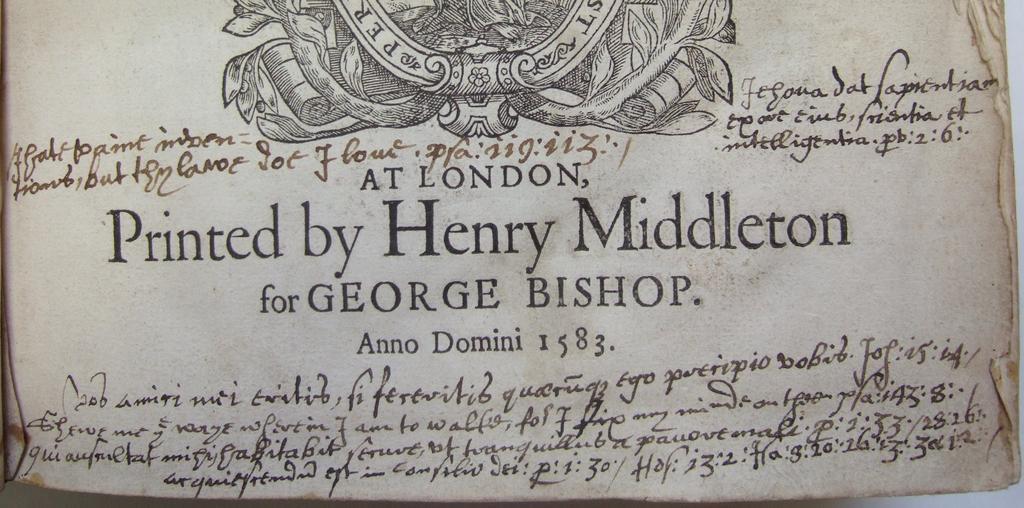 PER
ST
Jehova dat sapientiam
ex ore eius, scientia et
intelligentia. pv: 2: 6:
I hate vaine inven-
tions, but thy lawe doe I love. psa: 119: 113: /
AT LONDON,
Printed by Henry Middleton
for GEORGE BISHOP.
Anno Domini 1583.
Vos amici mei eritis, si feceritis quæcūq; ego precipio vobis. Joh: 15: 14 /
Shewe me y waye wherein I am to walke, for I fix my minde on thee psa: 143: 8:
qui auscultat mihi, habitabit secure, et tranquillus a pavore mali. p: 1: 33: / 28: 26:
acquiescendū est in consilio dei: p: 1: 30 / Hos: 13: 2: Isa: 8: 20: